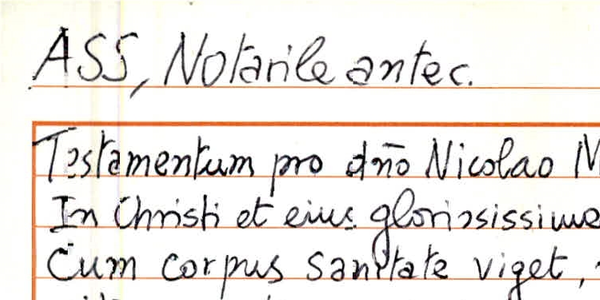 ASS, Notarile antec.
Testamentum pro dño Nicolao
In Christi et eius gloriosissimae
Cum corpus sanitate viget,